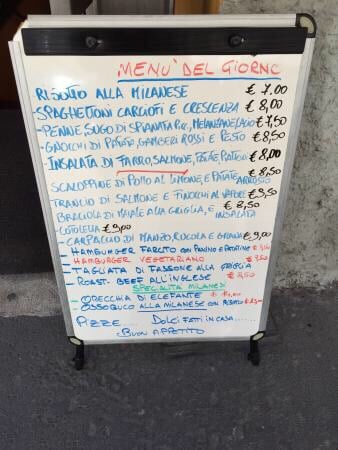 MENU' DEL GIORNO
RISOTTO ALLA MILANESE € 7,00
-SPAGHETTONI CARCIOFI E CRESCENZA € 8,00
-PENNE, SUGO DI SPIANATA PICC, MELANZANE, € 7,50
-GNOCCHI DI PATATA, GAMBERI ROSSI E PESTO € 8,50
-INSALATA DI FARRO, SALMONE, € 8,00
SCALOPPINE DI POLLO AL LIMONE, E PATATE ARROSTO € 8,50
TRANCIO DI SALMONE E FINOCCHI AL VAPORE € 9,50
BRACIOLA DI MAIALE ALLA GRIGLIA, E INSALATA € 8,50
-COTOLETTA € 9,00
-CARPACCIO DI MANZO, RUCOLA E GRANA € 9,00
- HAMBURGER FARCITO CON PANINO E PATATINE
- HAMBURGER VEGETARIANO
- TAGLIATA DI FASSONE ALLA GRIGLIA
- ROAST-BEEF ALL'INGLESE
SPECIALITÀ MILANESI
- ORECCHIA DI ELEFANTE
- OSSOBUCO ALLA MILANESE CON RISOTTO
PIZZE.... DOLCI FATTI IN CASA......
BUON APPETITO